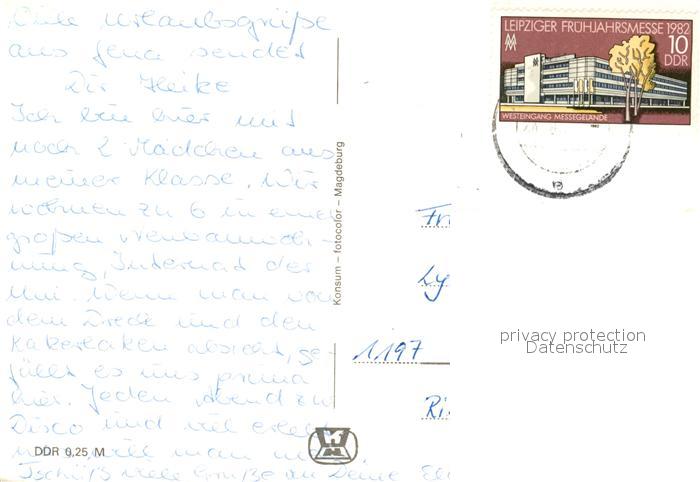 Liebe Urlaubsgrüße
aus Jena sendet
Dir Heike
Ich bin hier mit
noch 2 Mädchen aus
meiner Klasse. Wir
wohnen zu 6 in einer
großen Neubauwoh-
nung, Internat der
Uni. Wenn man von
dem Dreck und den
Kakerlaken absieht, ge-
fällt es uns prima
hier. Jeden Abend zur
Disco und viel erleben
will man
Tschüß viele Grüße an Deine
DDR 0,25 M
Konsum – fotocolor – Magdeburg
LEIPZIGER FRÜHJAHRSMESSE 1982
10
DDR
WESTEINGANG MESSEGELÄNDE
1982
Fr
Ly
1197
Ri
privacy protection
Datenschutz